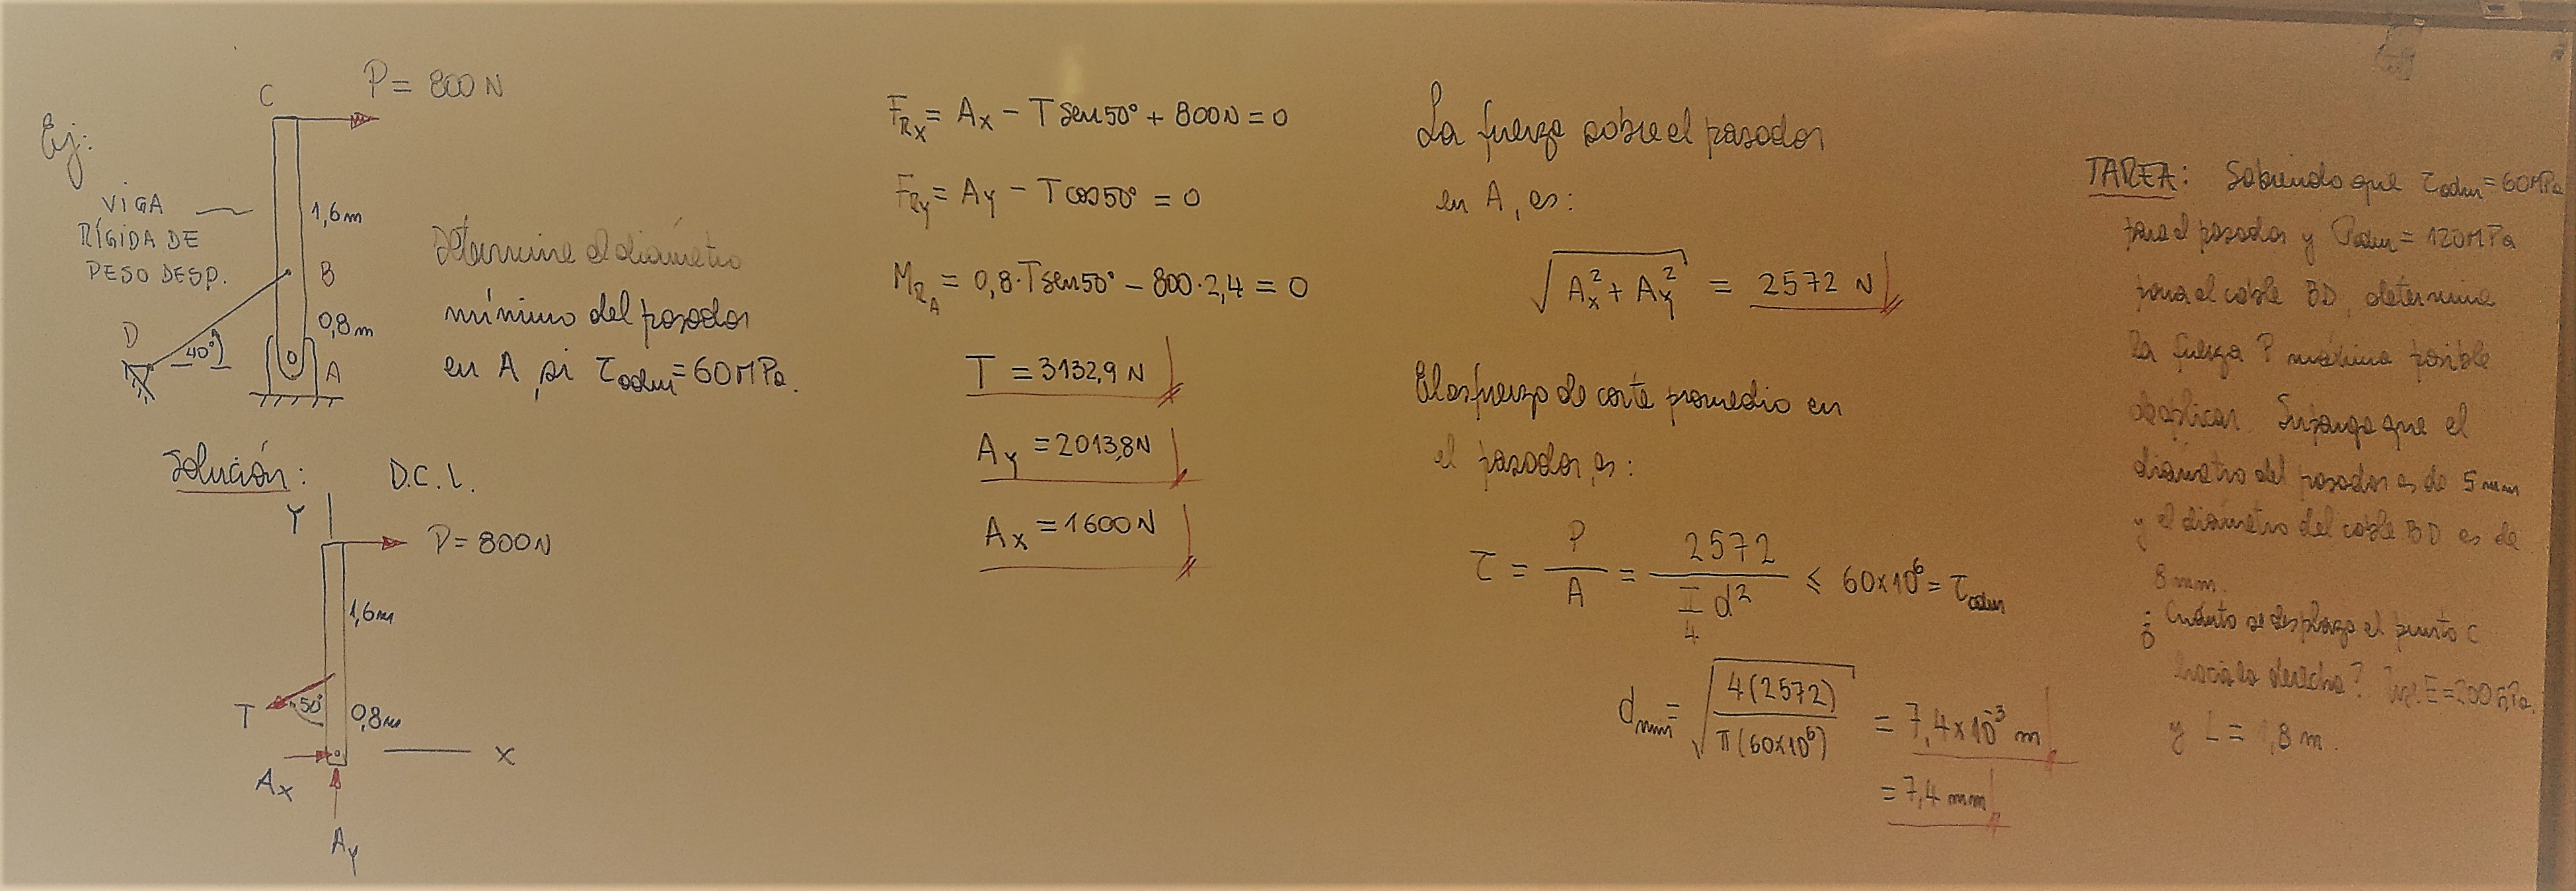 Ej:
C
P = 800 N
VIGA
RÍGIDA DE
PESO DESP.
1,6m
B
0,8m
D
40°
A
Determine el diámetro
mínimo del pasador
en A, si τadm = 60MPa.
Solución: D.C.L.
Y
P = 800N
1,6m
T
50°
0,8m
Ax
X
Ay
FRx = Ax − T sen50° + 800N = 0
FRy = Ay − T cos50° = 0
MRA = 0,8·T sen50° − 800·2,4 = 0
T = 3132,9 N
Ay = 2013,8N
Ax = 1600N
La fuerza sobre el pasador
en A, es:
√(Ax² + Ay²) = 2572 N
El esfuerzo de corte promedio en
el pasador, es:
τ = P/A = 2572/(π/4 d²) ≤ 60×10⁶ = τadm
dmin = √(4(2572)/π(60×10⁶)) = 7,4×10⁻³ m
= 7,4 mm
TAREA: Sabiendo que τadm = 60MPa
para el pasador y σadm = 120MPa
para el cable BD, determine
la fuerza P máxima posible
de aplicar. Suponga que el
diámetro del pasador es de 5 mm
y el diámetro del cable BD es de
8 mm.
¿Cuánto se desplaza el punto C
hacia la derecha? E = 200GPa.
y L = 1,8 m.